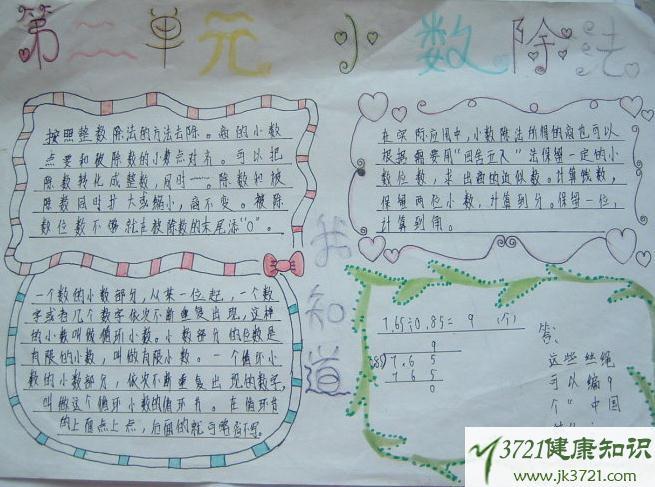 第二单元 小数除法
按照整数除法的方法去除。商的小数
点要和被除数的小数点对齐。可以把
除数转化成整数,同时……。除数和被
除数同时扩大或缩小,商不变。被除
数位数不够就在被除数的末尾添“0”。
在实际应用中,小数除法所得的商也可以
根据需要用“四舍五入”法保留一定的小
数位数,求出商的近似数。计算钱数,
保留两位小数,计算到分。保留一位,
计算到角。
我知道
一个数的小数部分,从某一位起,一个数
字或者几个数字依次不断重复出现,这样
的小数叫做循环小数。小数部分的位数是
有限的小数,叫做有限小数。一个循环小
数的小数部分,依次不断重复出现的数字,
叫做这个循环小数的循环节。在循环节
的上面点上点,后面的就可省不写。
7.65÷0.85=9(个)
9
7.65
765
0
答:
这些丝绳
可以编9
个“中国
3721健康知识
www.jk3721.com